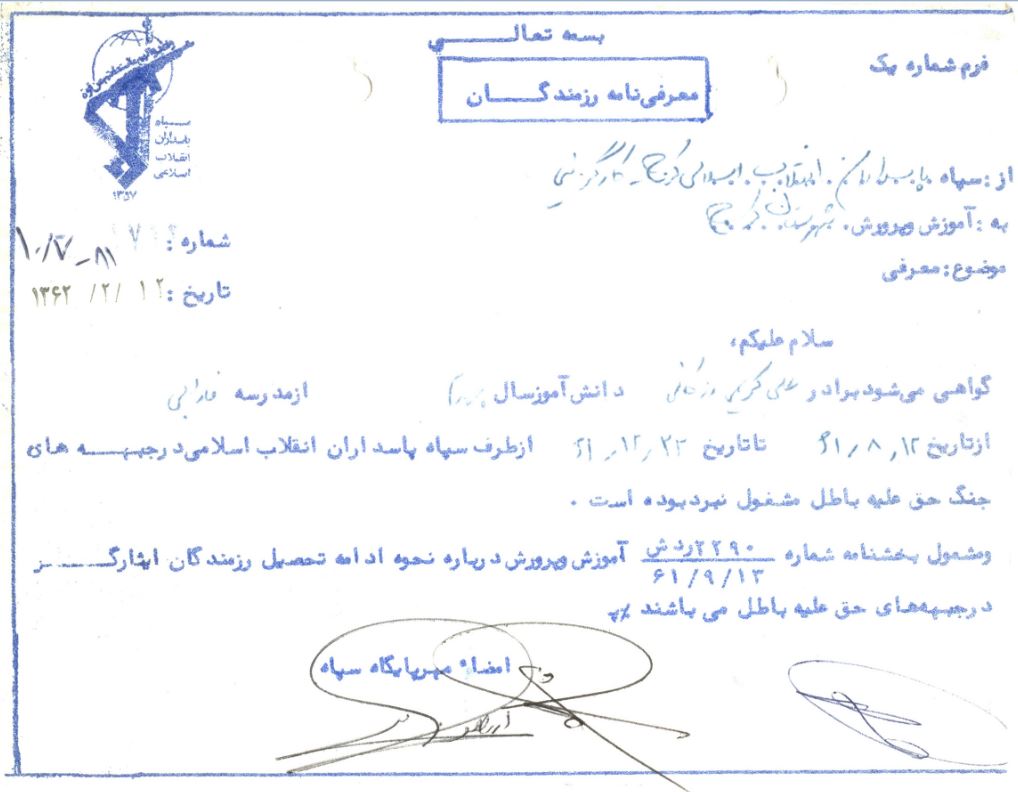 بسمه تعالی
فرم شماره یک
معرفی‌نامه رزمندگان
سپاه
پاسداران
انقلاب
اسلامی
۱۳۵۷
از: سپاه پاسداران انقلاب اسلامی کرج - کارگزینی
به: آموزش وپرورش شهرستان کرج
شماره: ۱۰/۷-۸۱
موضوع: معرفی
تاریخ: ۱۳۶۲/۲/۱۲
سلام علیکم،
گواهی می‌شود برادر علی کریمی دانش‌آموزسال ازمدرسه فارابی
ازتاریخ ۶۱/۸/۱۲ تاتاریخ ۶۱/۱۲/۲۳ ازطرف سپاه پاسداران انقلاب اسلامی درجبهه های
جنگ حق علیه باطل مشغول نبردبوده است .
ومشمول بخشنامه شماره ۲۲۹۰ آموزش وپرورش درباره نحوه ادامه تحصیل رزمندگان ایثارگر
۶۱/۹/۱۳
درجبهه‌های حق علیه باطل می باشند
امضاء مهرپایگاه سپاه